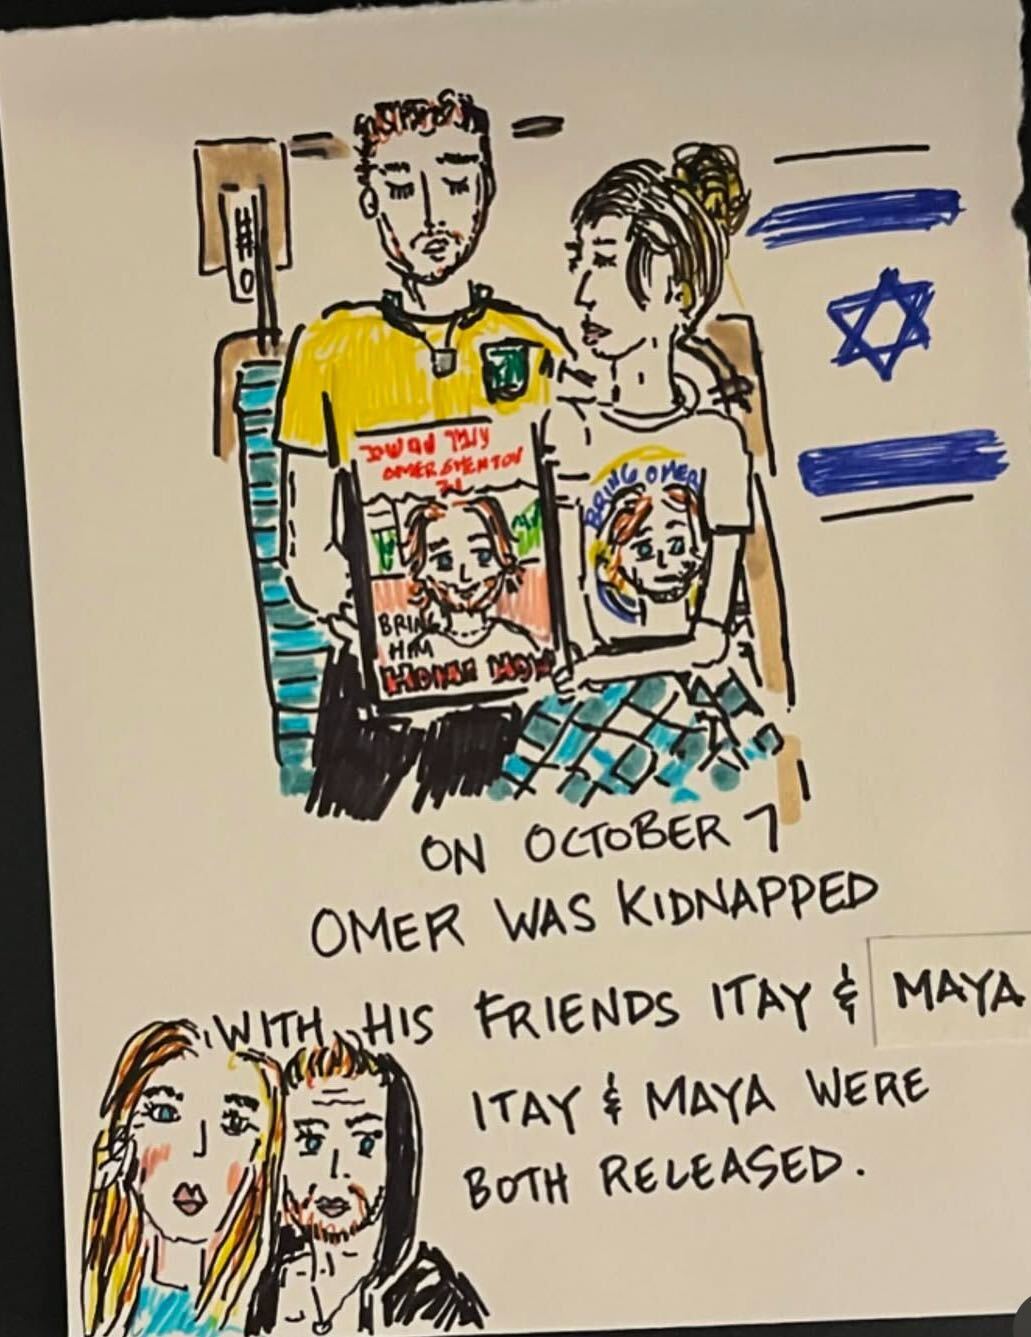 OMER SHEM TOV
21
BRING
HIM
HOME NOW
BRING OMER
ON OCTOBER 7
OMER WAS KIDNAPPED
WITH HIS FRIENDS ITAY & MAYA
ITAY & MAYA WERE
BOTH RELEASED.